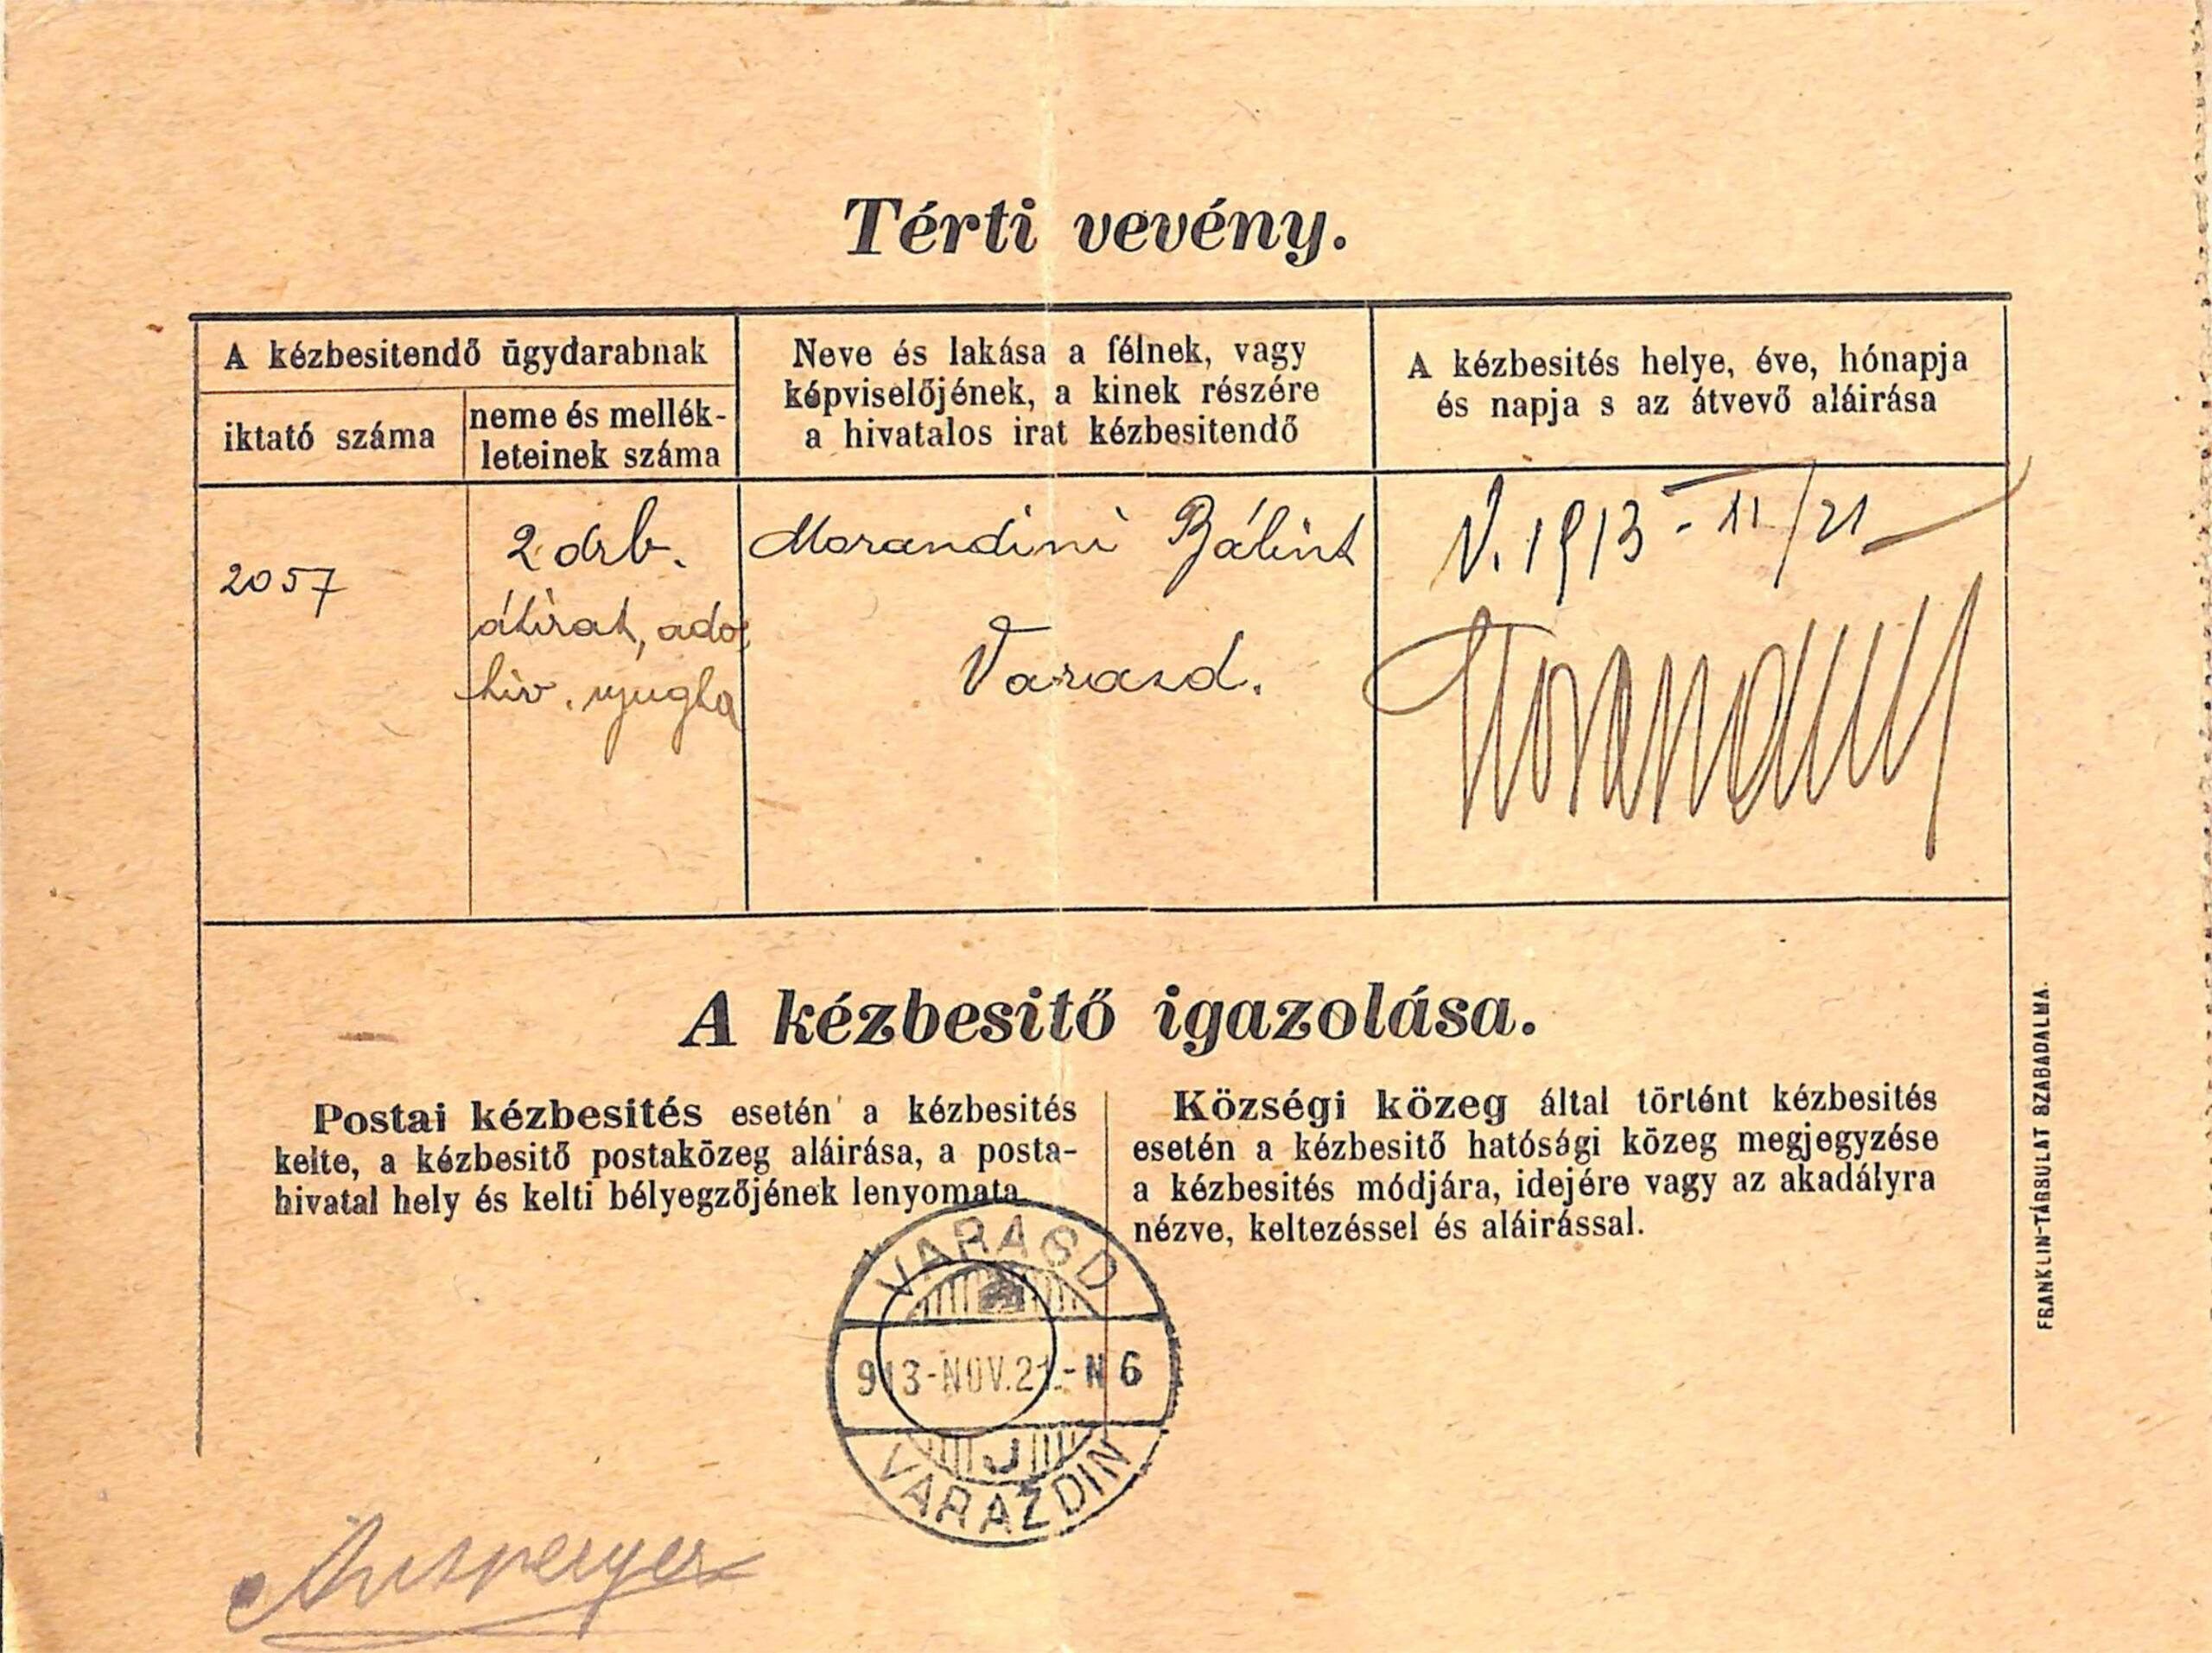 Térti vevény.
A kézbesitendő ügydarabnak
iktató száma
neme és mellék-
leteinek száma
Neve és lakása a félnek, vagy
képviselőjének, a kinek részére
a hivatalos irat kézbesitendő
A kézbesités helye, éve, hónapja
és napja s az átvevő aláirása
2057
2 drb.
átirat, adó
hiv. nyugta
Morandini Bálint
Varasd.
V. 1913 - 11/21
Morandini
A kézbesitő igazolása.
Postai kézbesités esetén a kézbesités
kelte, a kézbesitő postaközeg aláirása, a posta-
hivatal hely és kelti bélyegzőjének lenyomata
Községi közeg által történt kézbesités
esetén a kézbesitő hatósági közeg megjegyzése
a kézbesités módjára, idejére vagy az akadályra
nézve, keltezéssel és aláirással.
VARASD
913-NOV.21.-N6
J
VARAŽDIN
FRANKLIN-TÁRSULAT SZABADALMA.